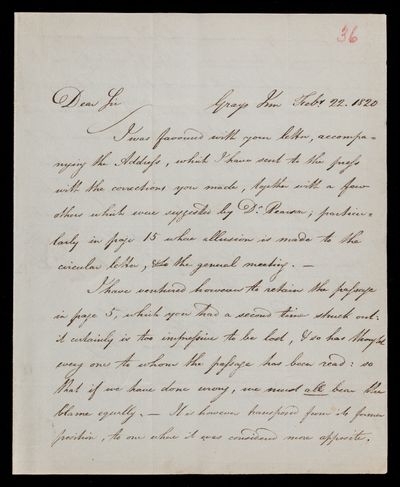 36
Dear Sir Grays Inn Feby. 22. 1820
I was favoured with your letter, accompa-
nying the Address, which I have sent to the press
with the corrections you made, together with a few
others which were suggested by Dr. Pearson, particu-
larly in page 15 where allusion is made to the
circular letter, & to the general meeting. —
I have ventured however to retain the passage
in page 5, which you had a second time struck out.
it certainly is too impressive to be lost, & so has thought
every one to whom the passage has been read: so
that if we have done wrong, we must all bear the
blame equally. — It is however transposed from its former
position, to one where it was considered more apposite.